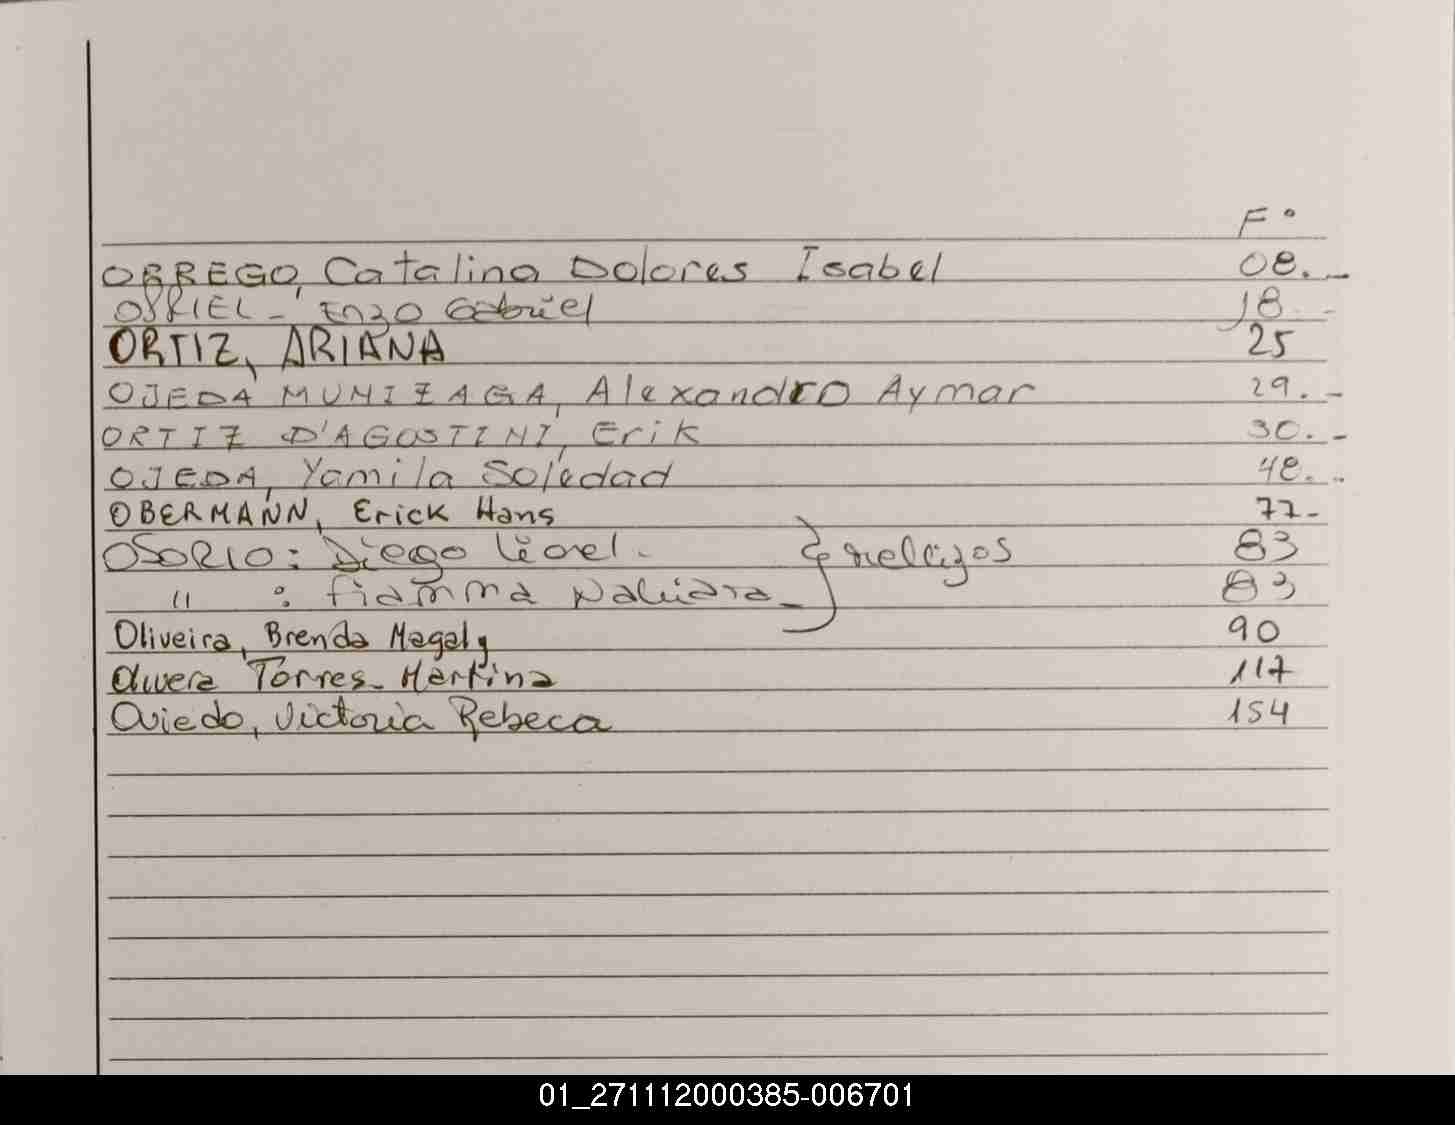 F°
OBREGO, Catalina Dolores Isabel 08.-
OSRIEL - Enzo Gabriel 18 -
ORTIZ, ARIANA 25
OJEDA MUNIZAGA, Alexandro Aymar 29.-
ORTIZ D'AGOSTINI, Erik 30.-
OJEDA, Yamila Soledad 48.-
OBERMANN, Erick Hans 77-
OSORIO: Diego Leonel. 83
" : fiamma Nahiara - 83
Oliveira, Brenda Magaly 90
Olivera Torres - Martina 117
Oviedo, Victoria Rebeca 154
01_271112000385-006701